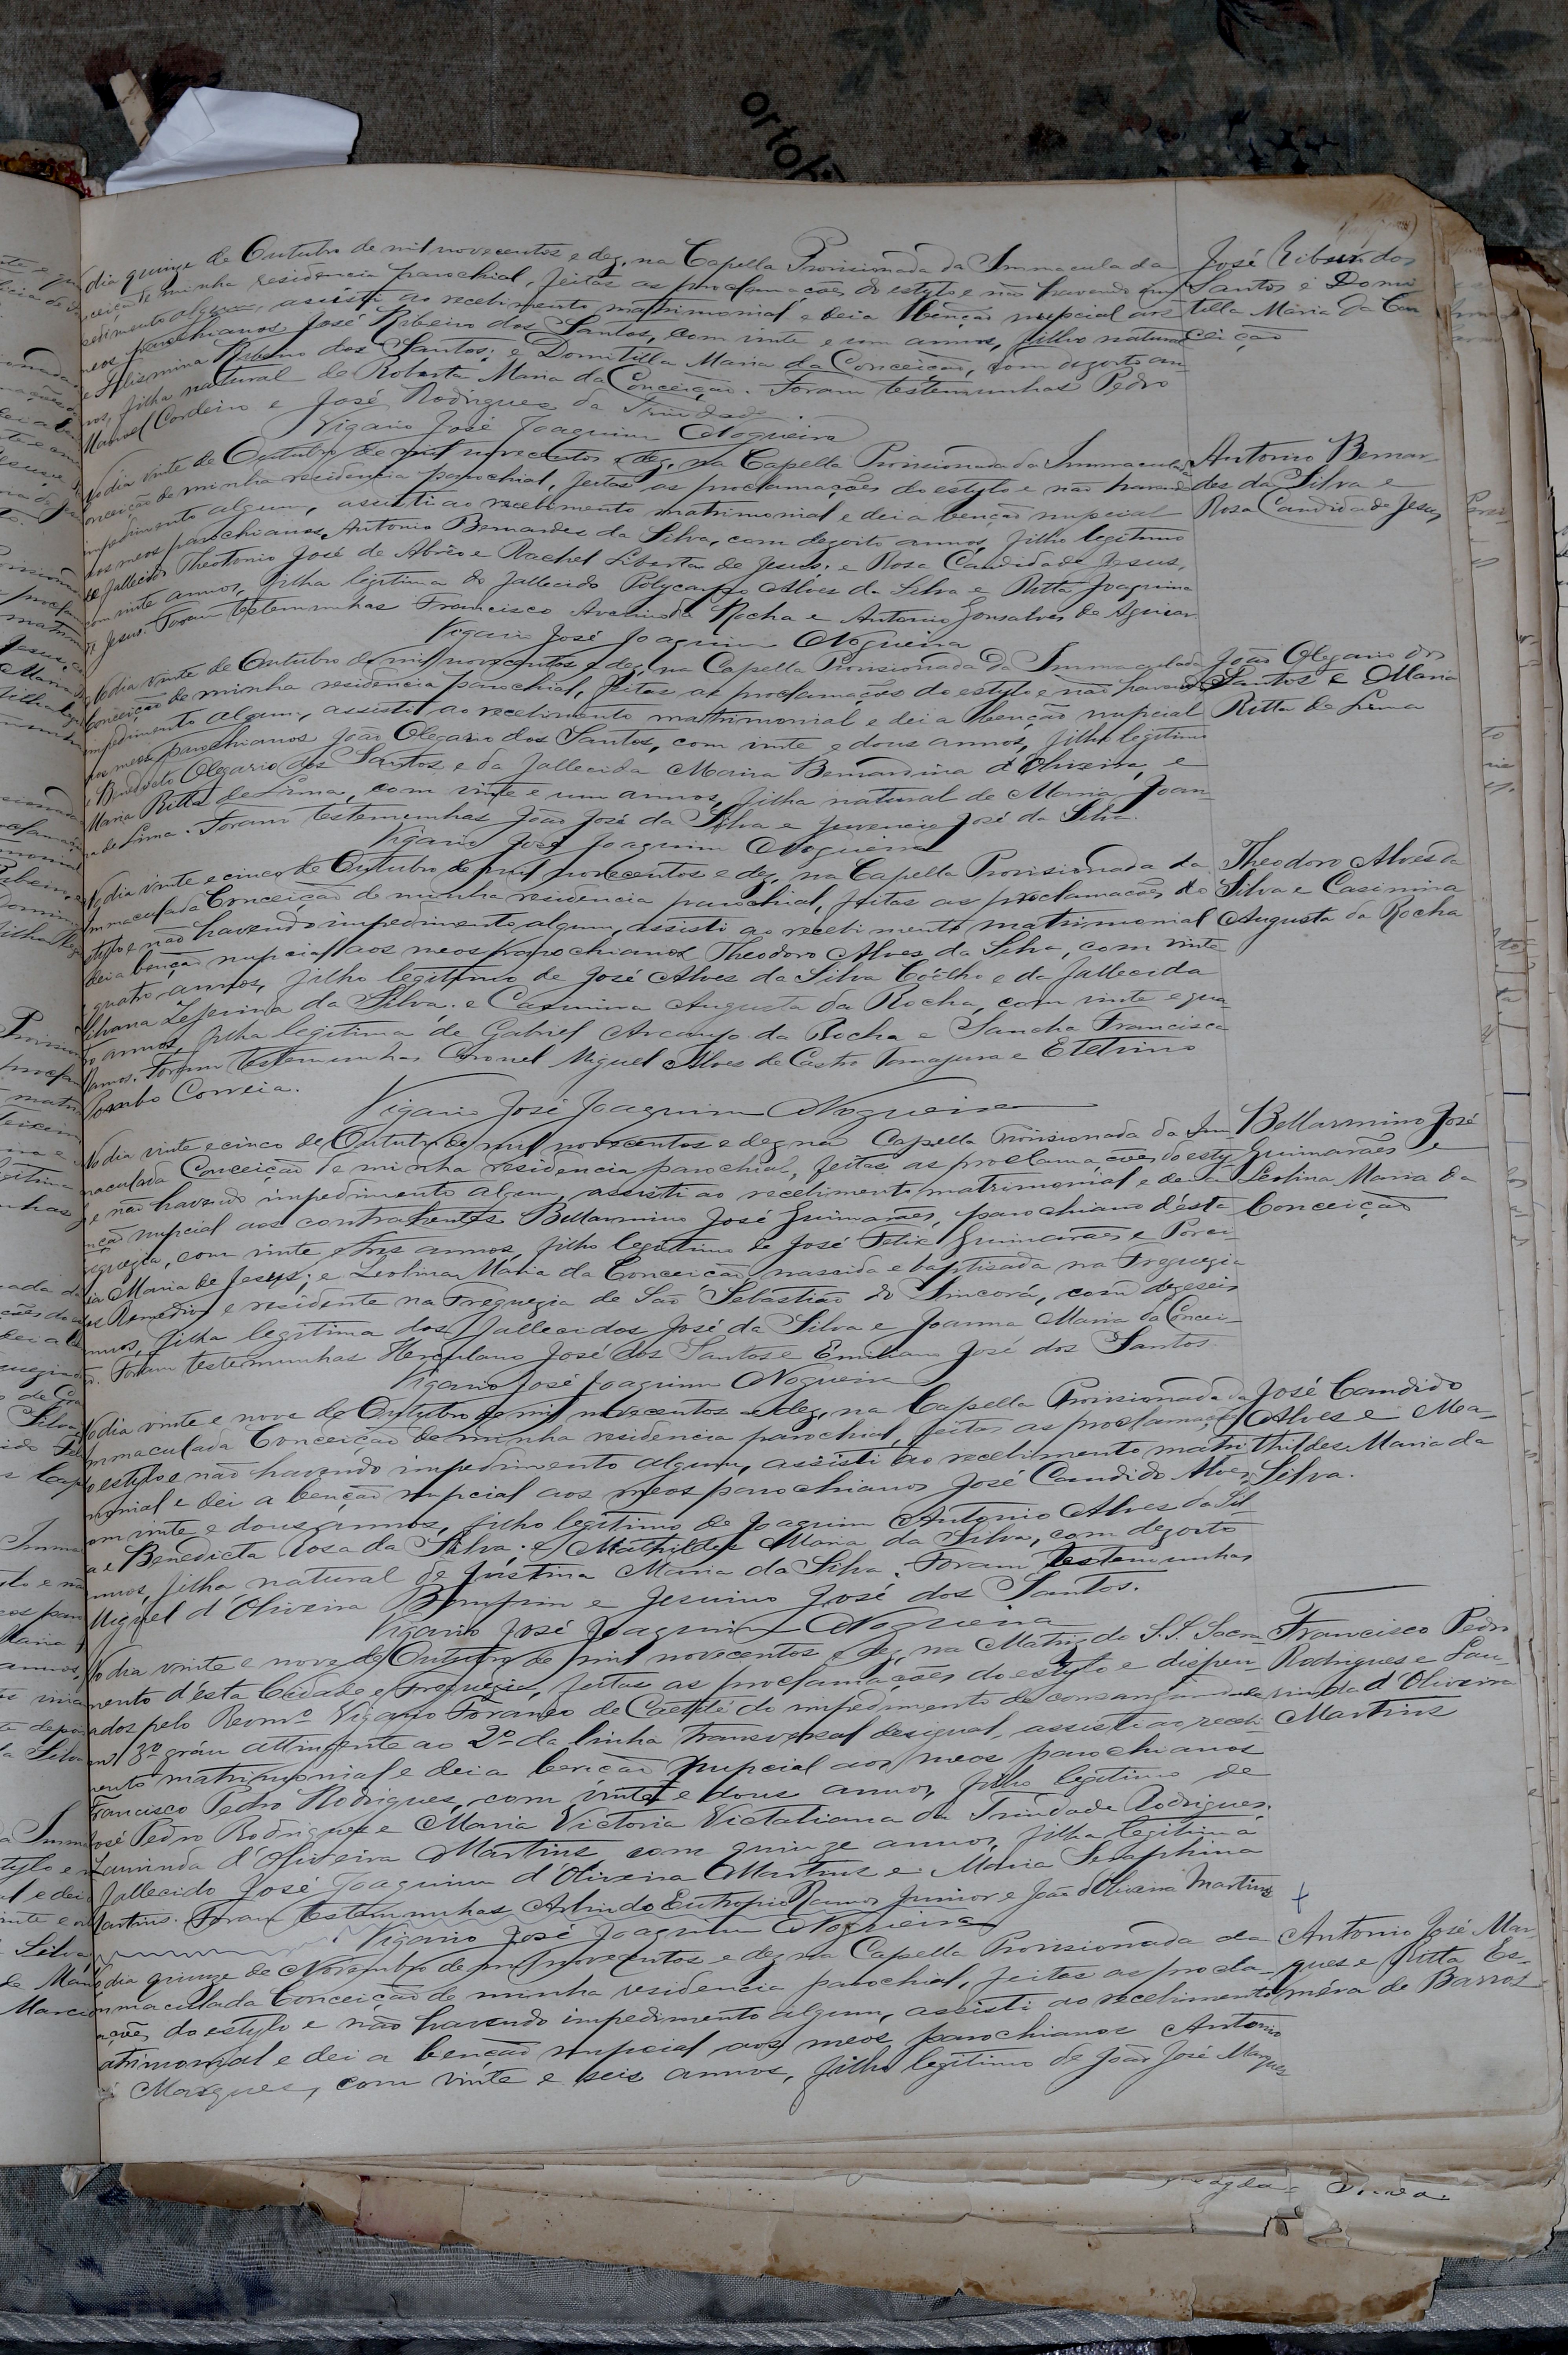 dia quinze de Outubro de mil novecentos e dez, na Capella Provisionada da Immaculada
José Ribeiro dos
de minha residencia parochial, feitas as proclamações do estylo e não havendo
Santos e Domi
algum, assisti ao recebimento matrimonial e dei a benção nupcial aos
tilla Maria da Con
meos parochianos José Ribeiro dos Santos, com vinte e um annos, filho natural
ceição
Ribeiro dos Santos; e Domitilla Maria da Conceição, com dezoito an
nos, filha natural de Roberta Maria da Conceição. Foram testemunhas Pedro
Manoel Cordeiro e José Rodrigues da Trindade
Vigario José Joaquim Nogueira
No dia vinte de Outubro de mil novecentos e dez, na Capella Provisionada da Immaculada
Antonio Bernar
Conceição de minha residencia parochial, feitas as proclamações do estylo e não havendo
des da Silva e
impedimento algum, assisti ao recebimento matrimonial e dei a benção nupcial
Rosa Candida de Jesus
aos meos parochianos Antonio Bernardes da Silva, com dezoito annos, filho legitimo
de fallecido Theotonio José de Abrêo e Rachel Liberta de Jesus; e Rosa Candida de Jesus,
com vinte annos, filha legitima do fallecido Polycarpo Alves da Silva e Ritta Joaquina
de Jesus. Foram testemunhas Francisco da Rocha e Antonio Gonsalves de Aguiar
Vigario José Joaquim Nogueira
No dia vinte de Outubro de mil novecentos e dez, na Capella Provisionada da Immaculada
João Olegario dos
Conceição de minha residencia parochial, feitas as proclamações do estylo e não havendo
Santos e Maria
impedimento algum, assisti ao recebimento matrimonial e dei a benção nupcial
Ritta de Lima
aos meos parochianos João Olegario dos Santos, com vinte e dous annos, filho legitimo
de Benedicto Olegario dos Santos e da fallecida Maria Bernardina d'Oliveira, e
Maria Ritta de Lima, com vinte e um annos, filha natural de Maria Joan-
na de Lima. Foram testemunhas João José da Silva e Juvencio José da Silva.
Vigario José Joaquim Nogueira
No dia vinte e cinco de Outubro de mil novecentos e dez, na Capella Provisionada da
Theodoro Alves da
Immaculada Conceição de minha residencia parochial, feitas as proclamações do
Silva e Casimira
estylo e não havendo impedimento algum, assisti ao recebimento matrimonial
Augusta da Rocha
dei a benção nupcial aos meos parochianos Theodoro Alves da Silva, com vinte
e quatro annos, filho legitimo de José Alves da Silva Coêlho e da fallecida
Zeferina da Silva; e Casimira Augusta da Rocha, com vinte e qua
tro annos, filha legitima de Gabriel Arcanjo da Rocha e Sancha Francisca
Ramos. Foram testemunhas Coronel Miguel Alves de Castro Tomajura e Etelvino
Pombo Correia.
Vigario José Joaquim Nogueira
No dia vinte e cinco de Outubro de mil novecentos e dez na Capella Provisionada da Im
Bellarmino José
maculada Conceição de minha residencia parochial, feitas as proclamações do esty-
Guimarães e
lo e não havendo impedimento algum, assisti ao recebimento matrimonial e dei a
Leolina Maria da
benção nupcial aos contrahentes Bellarmino José Guimarães, parochiano d'ésta
Conceição
freguezia, com vinte e tres annos, filho legitimo de José Felix Guimarães e Porci-
a Maria de Jesus; e Leolina Maria da Conceição, nascida e baptisada na Freguezia
dos Remedios e residente na Freguezia de São Sebastião do Sincorá, com dezeseis
annos, filha legitima dos fallecidos José da Silva e Joanna Maria da Concei-
ção. Foram testemunhas Herculano José dos Santos e Emiliano José dos Santos
Vigario José Joaquim Nogueira
No dia vinte e nove de Outubro de mil novecentos e dez, na Capella Provisionada da
José Candido
Immaculada Conceição de minha residencia parochial, feitas as proclamações
Alves e Ma-
do estylo e não havendo impedimento algum, assisti ao recebimento matri
thildes Maria da
monial e dei a benção nupcial aos meos parochianos José Candido Alves,
Silva.
com vinte e dous annos, filho legitimo de Joaquim Antonio Alves da Sil-
va e Benedicta Rosa da Silva; e Mathildes Maria da Silva, com dezoito
annos, filha natural de Justina Maria da Silva. Foram testemunhas
Miguel d'Oliveira Bomfim e Jesuino José dos Santos.
Vigario José Joaquim Nogueira
No dia vinte e nove de Outubro de mil novecentos e dez, na Matriz do S.S. Sacra
Francisco Pedro
mento d'ésta Cidade e Freguezia, feitas as proclamações do estylo e dispen-
Rodrigues e Lau-
sados pelo Revmº Vigario Foraneo de Caetité do impedimento de consanguinidade
rinda d'Oliveira
em 3º gráu attingente ao 2º da linha transversal desigual, assisti ao recebi-
Martins
mento matrimonial e dei a benção nupcial aos meos parochianos
Francisco Pedro Rodrigues, com vinte e dous annos, filho legitimo de
José Pedro Rodrigues e Maria Victoria Victaliana da Trindade Rodrigues;
Laurinda d'Oliveira Martins, com quinze annos, filha legitima
fallecido José Joaquim d'Oliveira Martins e Maria Seraphina
Martins. Foram testemunhas Arlindo Eutropio Ramos Junior e João d'Oliveira Martins
Vigario José Joaquim Nogueira
No dia quinze de Novembro de mil novecentos e dez na Capella Provisionada da
Antonio José Mar-
Immaculada Conceição de minha residencia parochial, feitas as procla-
ques e Jutta Es-
mações do estylo e não havendo impedimento algum, assisti ao recebimento
méra de Barros
matrimonial e dei a benção nupcial aos meos parochianos Antonio
José Marques, com vinte e seis annos, filho legitimo de João José Marques